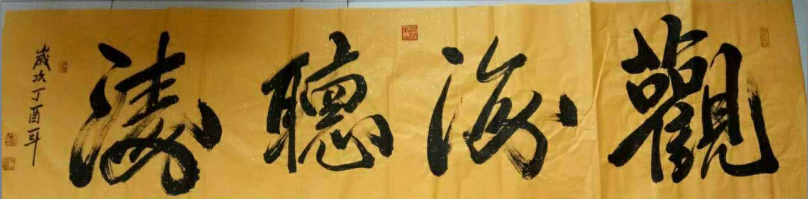 觀海聽涛
歲次丁酉年